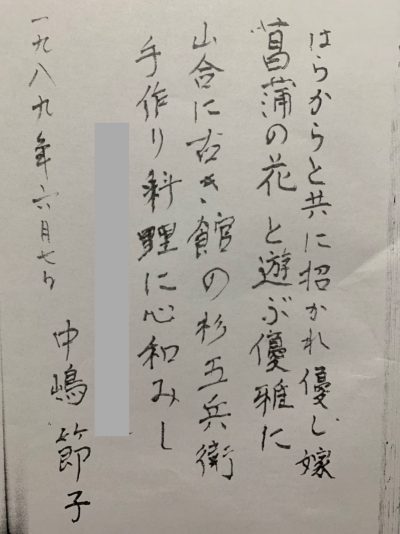 はらからと共に招かれ優し嫁
菖蒲の花と遊ぶ優雅に
山合に古き館の杉五兵衛
手作り料理に心和みし
一九八九年六月七日
中嶋節子